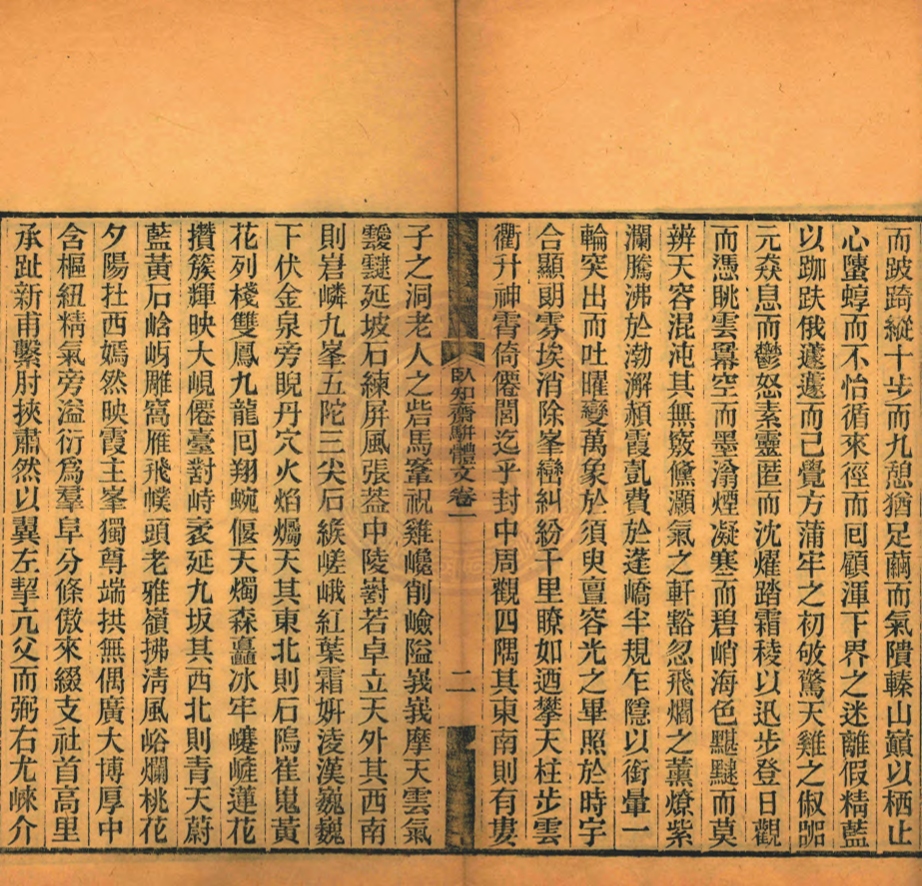 而跛踦縱十步而九憩猶足繭而氣隤轃山巔以栖止
心蠁蜳而不怡循來徑而囘顧渾下界之迷離假精藍
以跏趺俄蘧蘧而已覺方蒲牢之初攱驚天雞之俶
元猋息而鬱怒素靈匿而沈燿踏霜稜以迅步登日觀
而憑眺雲羃空而墨滃煙凝寒而碧峭海色黮而莫
辨天容混沌其無竅儵灝氣之軒豁忽飛爓之薰燎紫
瀾騰沸於渤澥赬霞㲄費於蓬嶠半規乍隱以銜暈一
輪突出而吐曜變萬象於須臾亶容光之畢照於時宇
合顯朗雰埃消除峯巒糾紛千里瞭如迺攀天柱步雲
衢升神霄倚僊閭迄乎封中周觀四隅其東南則有㜢
臥知齋駢體文卷一
二
子之洞老人之砦馬鞌祝雞巉削嶮隘峩峩摩天雲氣
靉靆延坡石練屏風張葢中陵嶎若卓立天外其西南
則岧嶙九峯五陀三尖石縱嵯峨紅葉霜妍淩漢巍巍
下伏金泉旁睨丹穴火焰爥天其東北則石隖崔嵬黃
花列棧雙鳳九龍囘翔蜿偃天燭森矗冰牢巉嵼蓮花
攢簇輝映大峴僊臺對峙袤延九坂其西北則青天蔚
藍黃石峆岈雕窩雁飛幞頭老雅嶺拂淸風峪爛桃花
夕陽在西嫣然映霞主峯獨尊端拱無偶廣大博厚中
含樞紐精氣旁溢衍爲羣阜分條傲來綴支社首高里
承趾新甫繫肘挾肅然以翼左挈亢父而弼右尤崍介